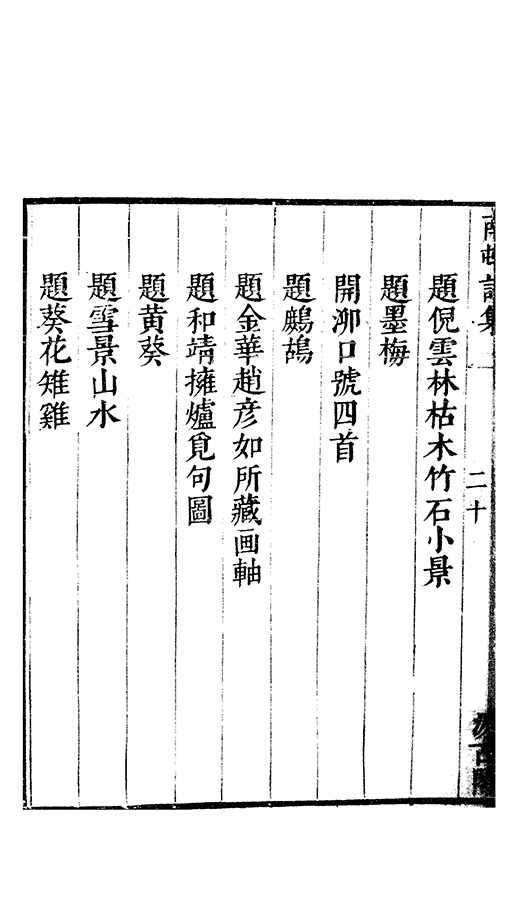 題倪雲林枯木竹石小景
題墨梅
開泖口號四首
題鷓鴣
題金華趙彦如所藏画軸
題和靖擁爐覓句圖
題黄葵
題雪景山水
題葵花雉雞
二十